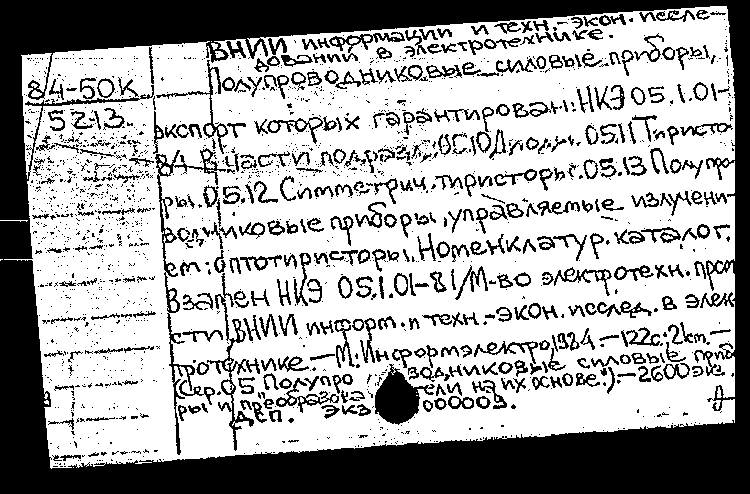 ВНИИ информации и техн.-экон. иссле-
дований в электротехнике.
84-50К
Полупроводниковые силовые приборы,
5213
экспорт которых гарантирован: НКЭ 05.1.01-
84 В части подразд.: 0510 Диоды. 0511 Тиристо
ры. 05.12 Симметрич. тиристоры. 05.13 Полупро
водниковые приборы, управляемые излучени-
ем: оптотиристоры. Номенклатур. каталог.
Взамен НКЭ 05.1.01-81/М-во электротехн. пром
сти, ВНИИ информ. и техн.-экон. исслед. в элек
тротехнике. — М.: Информэлектро, 1984. — 122с.; 2km. —
(Сер. 05 „Полупро водниковые силовые прибо
ры и преобразова тели на их основе.“). — 2600 экз.
ДСП. Экз. 000009.